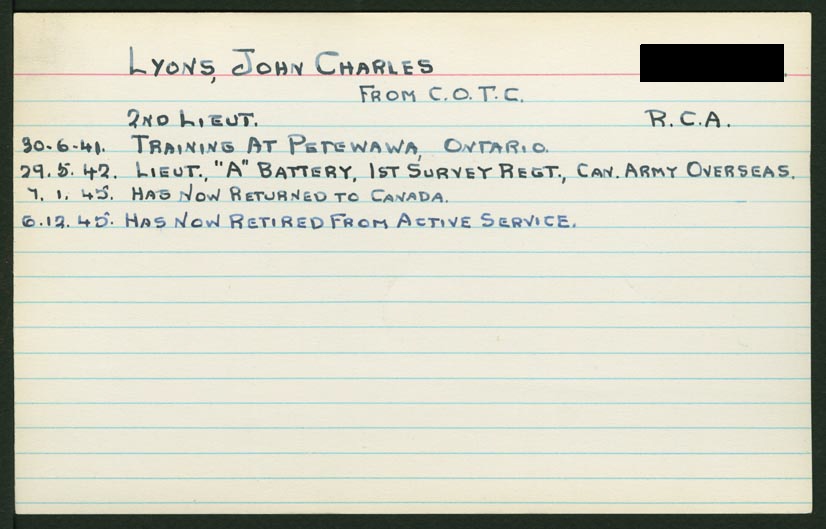 LYONS, JOHN CHARLES
FROM C.O.T.C.
2ND LIEUT. R.C.A.
30.6.41. TRAINING AT PETEWAWA, ONTARIO.
29.5.42. LIEUT., "A" BATTERY, 1ST SURVEY REGT., CAN. ARMY OVERSEAS.
7.1.45. HAS NOW RETURNED TO CANADA.
6.12.45. HAS NOW RETIRED FROM ACTIVE SERVICE.